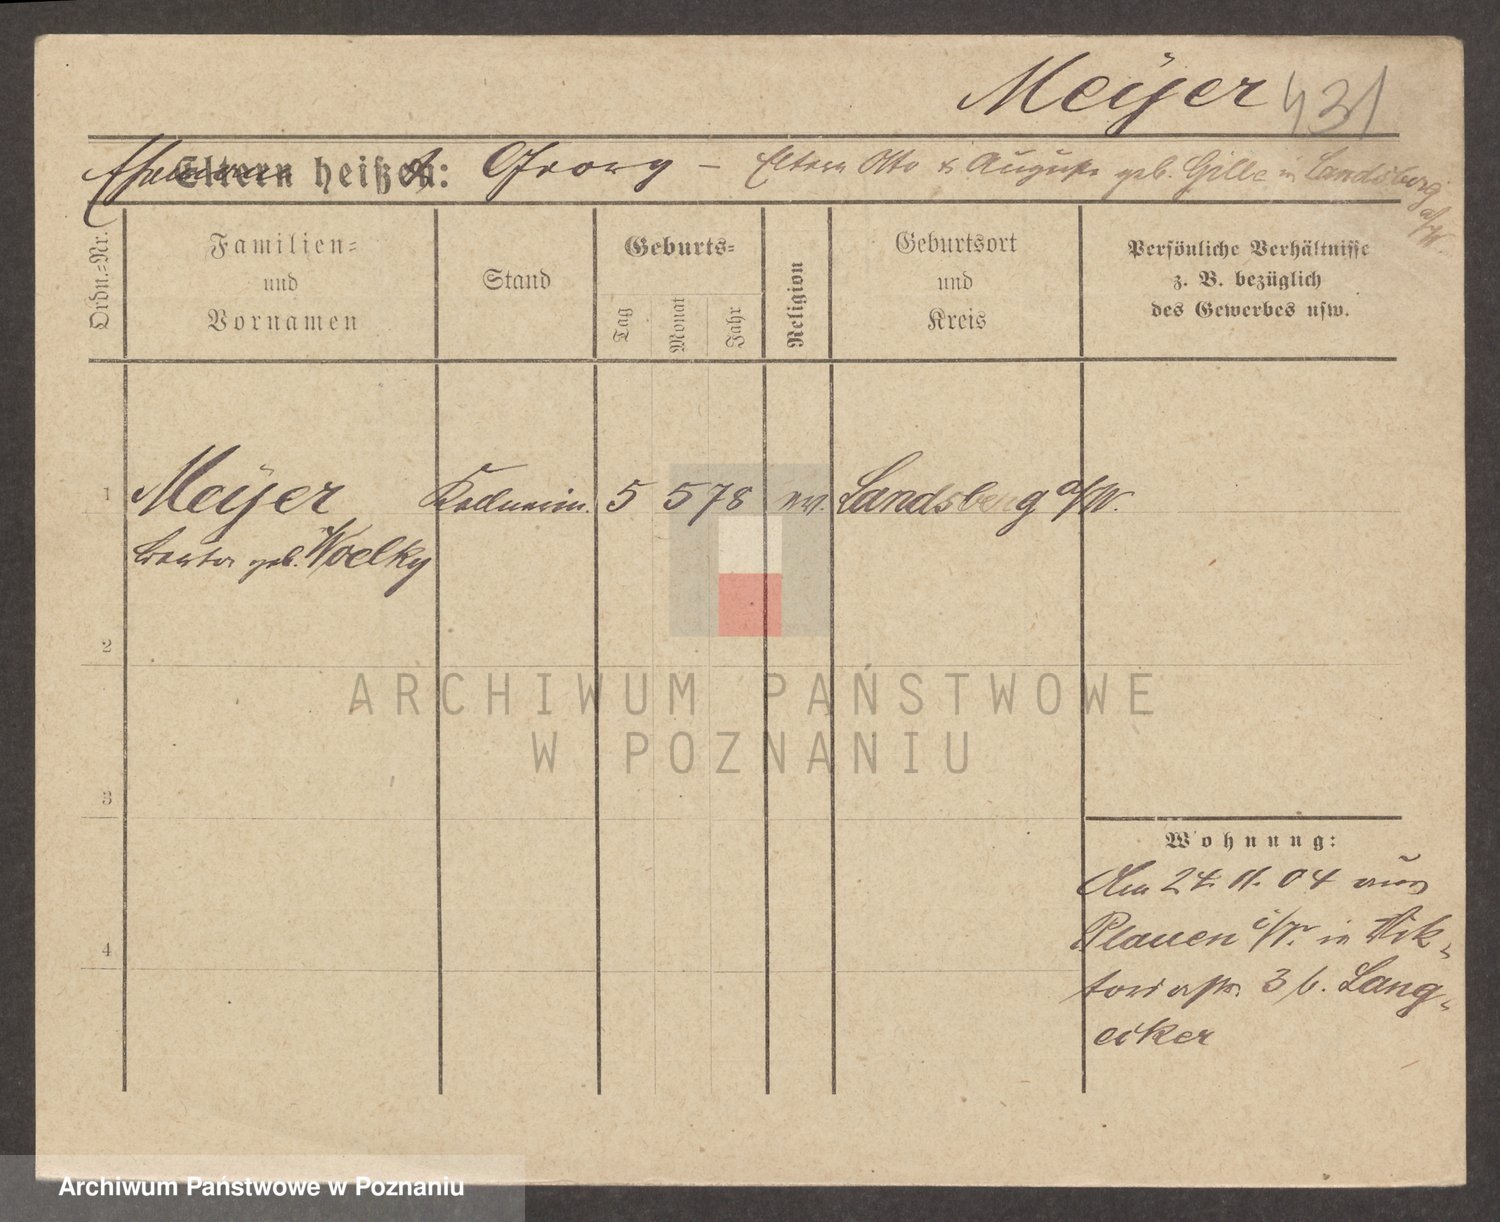 Meÿer 431
Ehemann
Eltern heißen: Georg – Eltern Otto & Auguste geb. Gille in Landsberg a/W.
Ordn.=Nr.
Familien=
und
Vornamen
Stand
Geburts=
Tag
Monat
Jahr
Religion
Geburtsort
und
Kreis
Persönliche Verhältnisse
z. B. bezüglich
des Gewerbes usw.
1 Meÿer 5 5 78 ev. Landsberg a/W.
geb. Woelky
2
ARCHIWUM PAŃSTWOWE
W POZNANIU
3
Wohnung:
Am 24. 11. 04 aus
Plauen i/V. in Vik-
4
toriastr. 3 b. Lang-
ecker
Archiwum Państwowe w Poznaniu